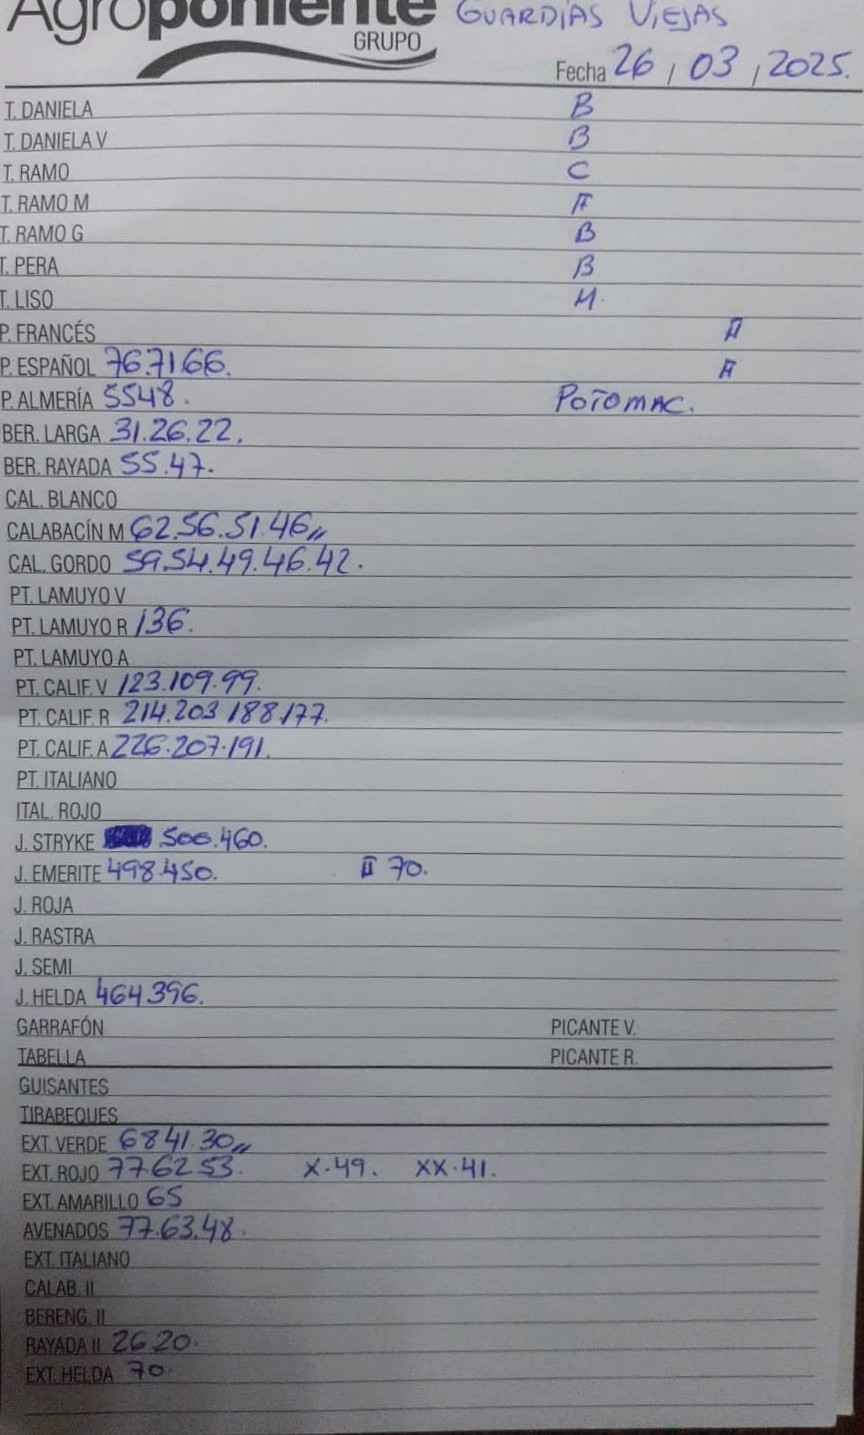 Agroponiente GUARDIAS VIEJAS
GRUPO
Fecha 26 / 03 / 2025.
T. DANIELA B
T. DANIELA V B
T. RAMO C
T. RAMO M A
T. RAMO G B
T. PERA B
T. LISO M.
P. FRANCÉS A
P. ESPAÑOL 76.71.66. A
P. ALMERÍA 55 48. POTOMAC.
BER. LARGA 31.26.22.
BER. RAYADA 55.47.
CAL. BLANCO
CALABACÍN M 62.56.51.46,,
CAL. GORDO 59.54.49.46.42.
PT. LAMUYO V
PT. LAMUYO R 136.
PT. LAMUYO A
PT. CALIF. V 123.109.99.
PT. CALIF. R 214.203 188.177.
PT. CALIF. A 226.207.191.
PT. ITALIANO
ITAL. ROJO
J. STRYKE 500.460.
J. EMERITE 498.450. II 70.
J. ROJA
J. RASTRA
J. SEMI
J. HELDA 464.396.
GARRAFÓN PICANTE V.
TABELLA PICANTE R.
GUISANTES
TIRABEQUES
EXT. VERDE 68 41.30,,
EXT. ROJO 77.62.53. X.49. XX.41.
EXT. AMARILLO 65
AVENADOS 77.63.48.
EXT. ITALIANO
CALAB. II
BERENG. II
RAYADA II 26 20.
EXT. HELDA 70.